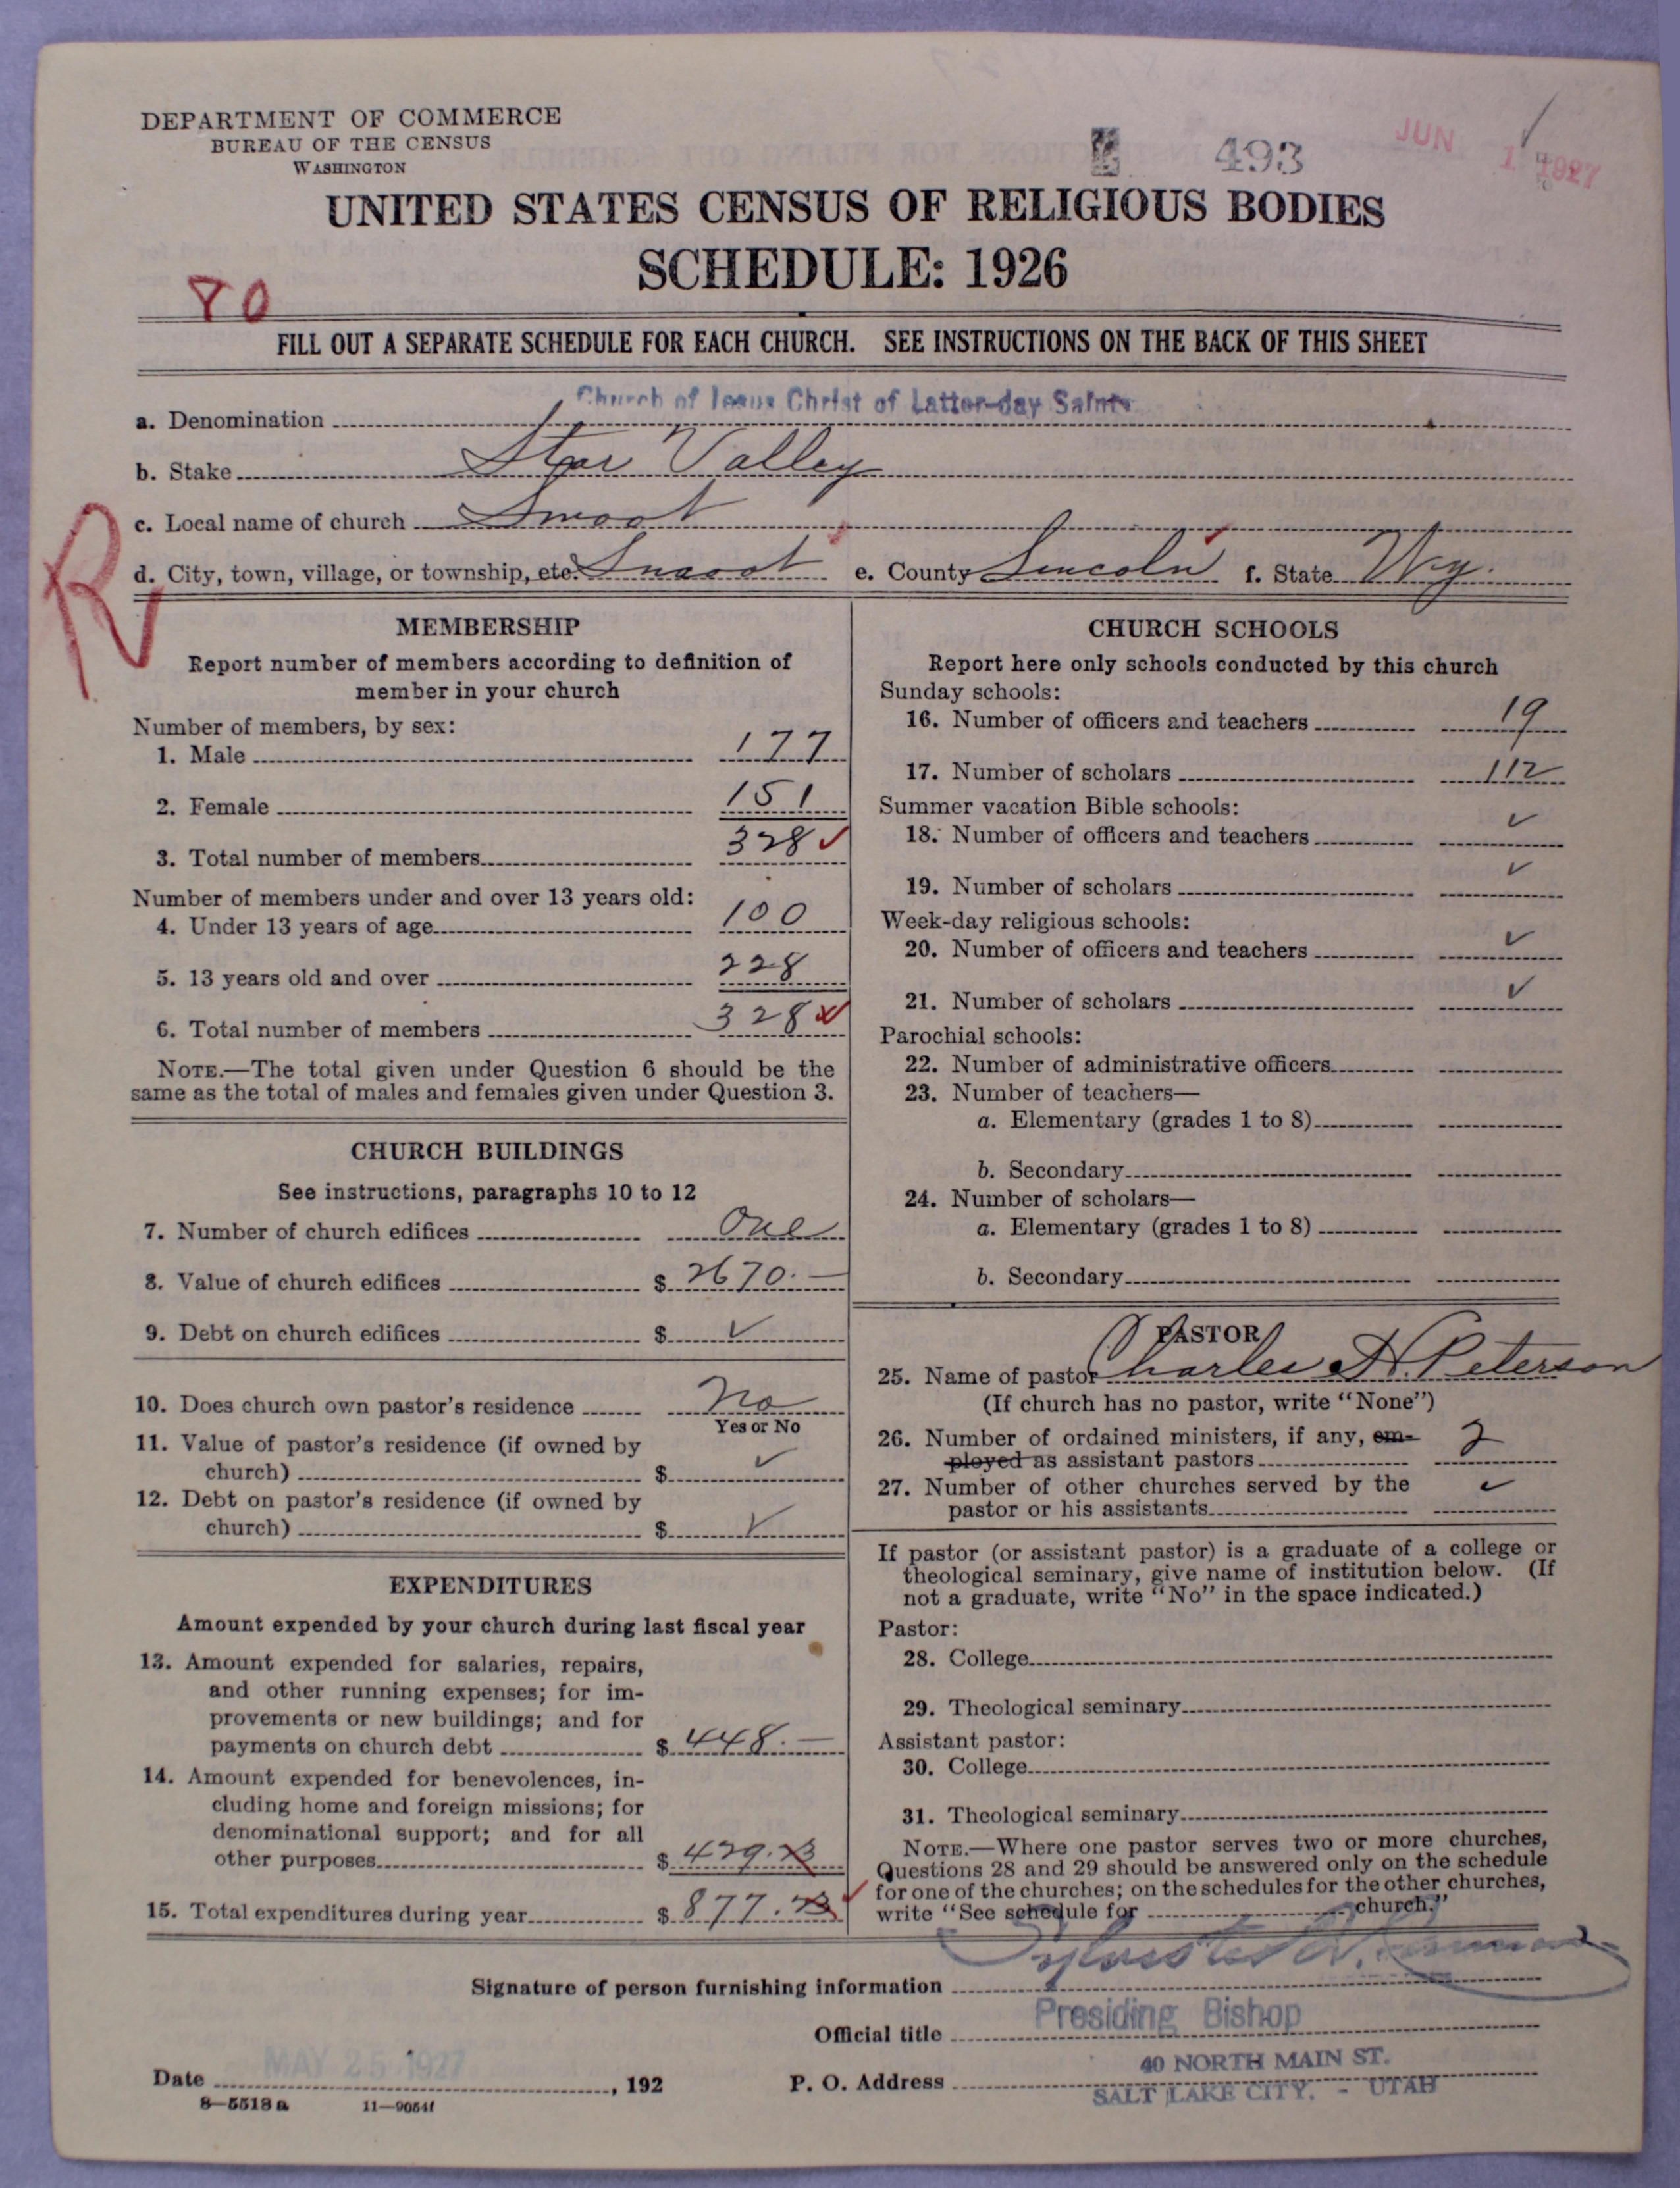 DEPARTMENT OF COMMERCE
BUREAU OF THE CENSUS
WASHINGTON
493
JUN 1 1927
UNITED STATES CENSUS OF RELIGIOUS BODIES
SCHEDULE: 1926
80
FILL OUT A SEPARATE SCHEDULE FOR EACH CHURCH. SEE INSTRUCTIONS ON THE BACK OF THIS SHEET
a. Denomination Church of Jesus Christ of Latter-day Saints
b. Stake Star Valley
c. Local name of church Smoot
R
d. City, town, village, or township, etc. Smoot e. County Lincoln f. State Wy.
MEMBERSHIP
Report number of members according to definition of
member in your church
Number of members, by sex:
1. Male 177
2. Female 151
3. Total number of members 328 ✓
Number of members under and over 13 years old:
4. Under 13 years of age 100
5. 13 years old and over 228
6. Total number of members 328
NOTE.—The total given under Question 6 should be the
same as the total of males and females given under Question 3.
CHURCH BUILDINGS
See instructions, paragraphs 10 to 12
7. Number of church edifices One
8. Value of church edifices $ 2670.—
9. Debt on church edifices $ ✓
10. Does church own pastor's residence No
Yes or No
11. Value of pastor's residence (if owned by
church) $ ✓
12. Debt on pastor's residence (if owned by
church) $ ✓
EXPENDITURES
Amount expended by your church during last fiscal year
13. Amount expended for salaries, repairs,
and other running expenses; for im-
provements or new buildings; and for
payments on church debt $ 448.—
14. Amount expended for benevolences, in-
cluding home and foreign missions; for
denominational support; and for all
other purposes $ 429.23
15. Total expenditures during year $ 877.23 ✓
CHURCH SCHOOLS
Report here only schools conducted by this church
Sunday schools:
16. Number of officers and teachers 19
17. Number of scholars 112
Summer vacation Bible schools:
18. Number of officers and teachers ✓
19. Number of scholars ✓
Week-day religious schools:
20. Number of officers and teachers ✓
21. Number of scholars ✓
Parochial schools:
22. Number of administrative officers
23. Number of teachers—
a. Elementary (grades 1 to 8)
b. Secondary
24. Number of scholars—
a. Elementary (grades 1 to 8)
b. Secondary
PASTOR
25. Name of pastor Charles H. Peterson
(If church has no pastor, write "None")
26. Number of ordained ministers, if any, em-
ployed as assistant pastors 2
27. Number of other churches served by the
pastor or his assistants ✓
If pastor (or assistant pastor) is a graduate of a college or
theological seminary, give name of institution below. (If
not a graduate, write "No" in the space indicated.)
Pastor:
28. College
29. Theological seminary
Assistant pastor:
30. College
31. Theological seminary
NOTE.—Where one pastor serves two or more churches,
Questions 28 and 29 should be answered only on the schedule
for one of the churches; on the schedules for the other churches,
write "See schedule for church."
Signature of person furnishing information Sylvester Q. Cannon
Official title Presiding Bishop
Date MAY 25 1927, 192 P. O. Address 40 NORTH MAIN ST.
SALT LAKE CITY, - UTAH
8—5518 a 11—9054f